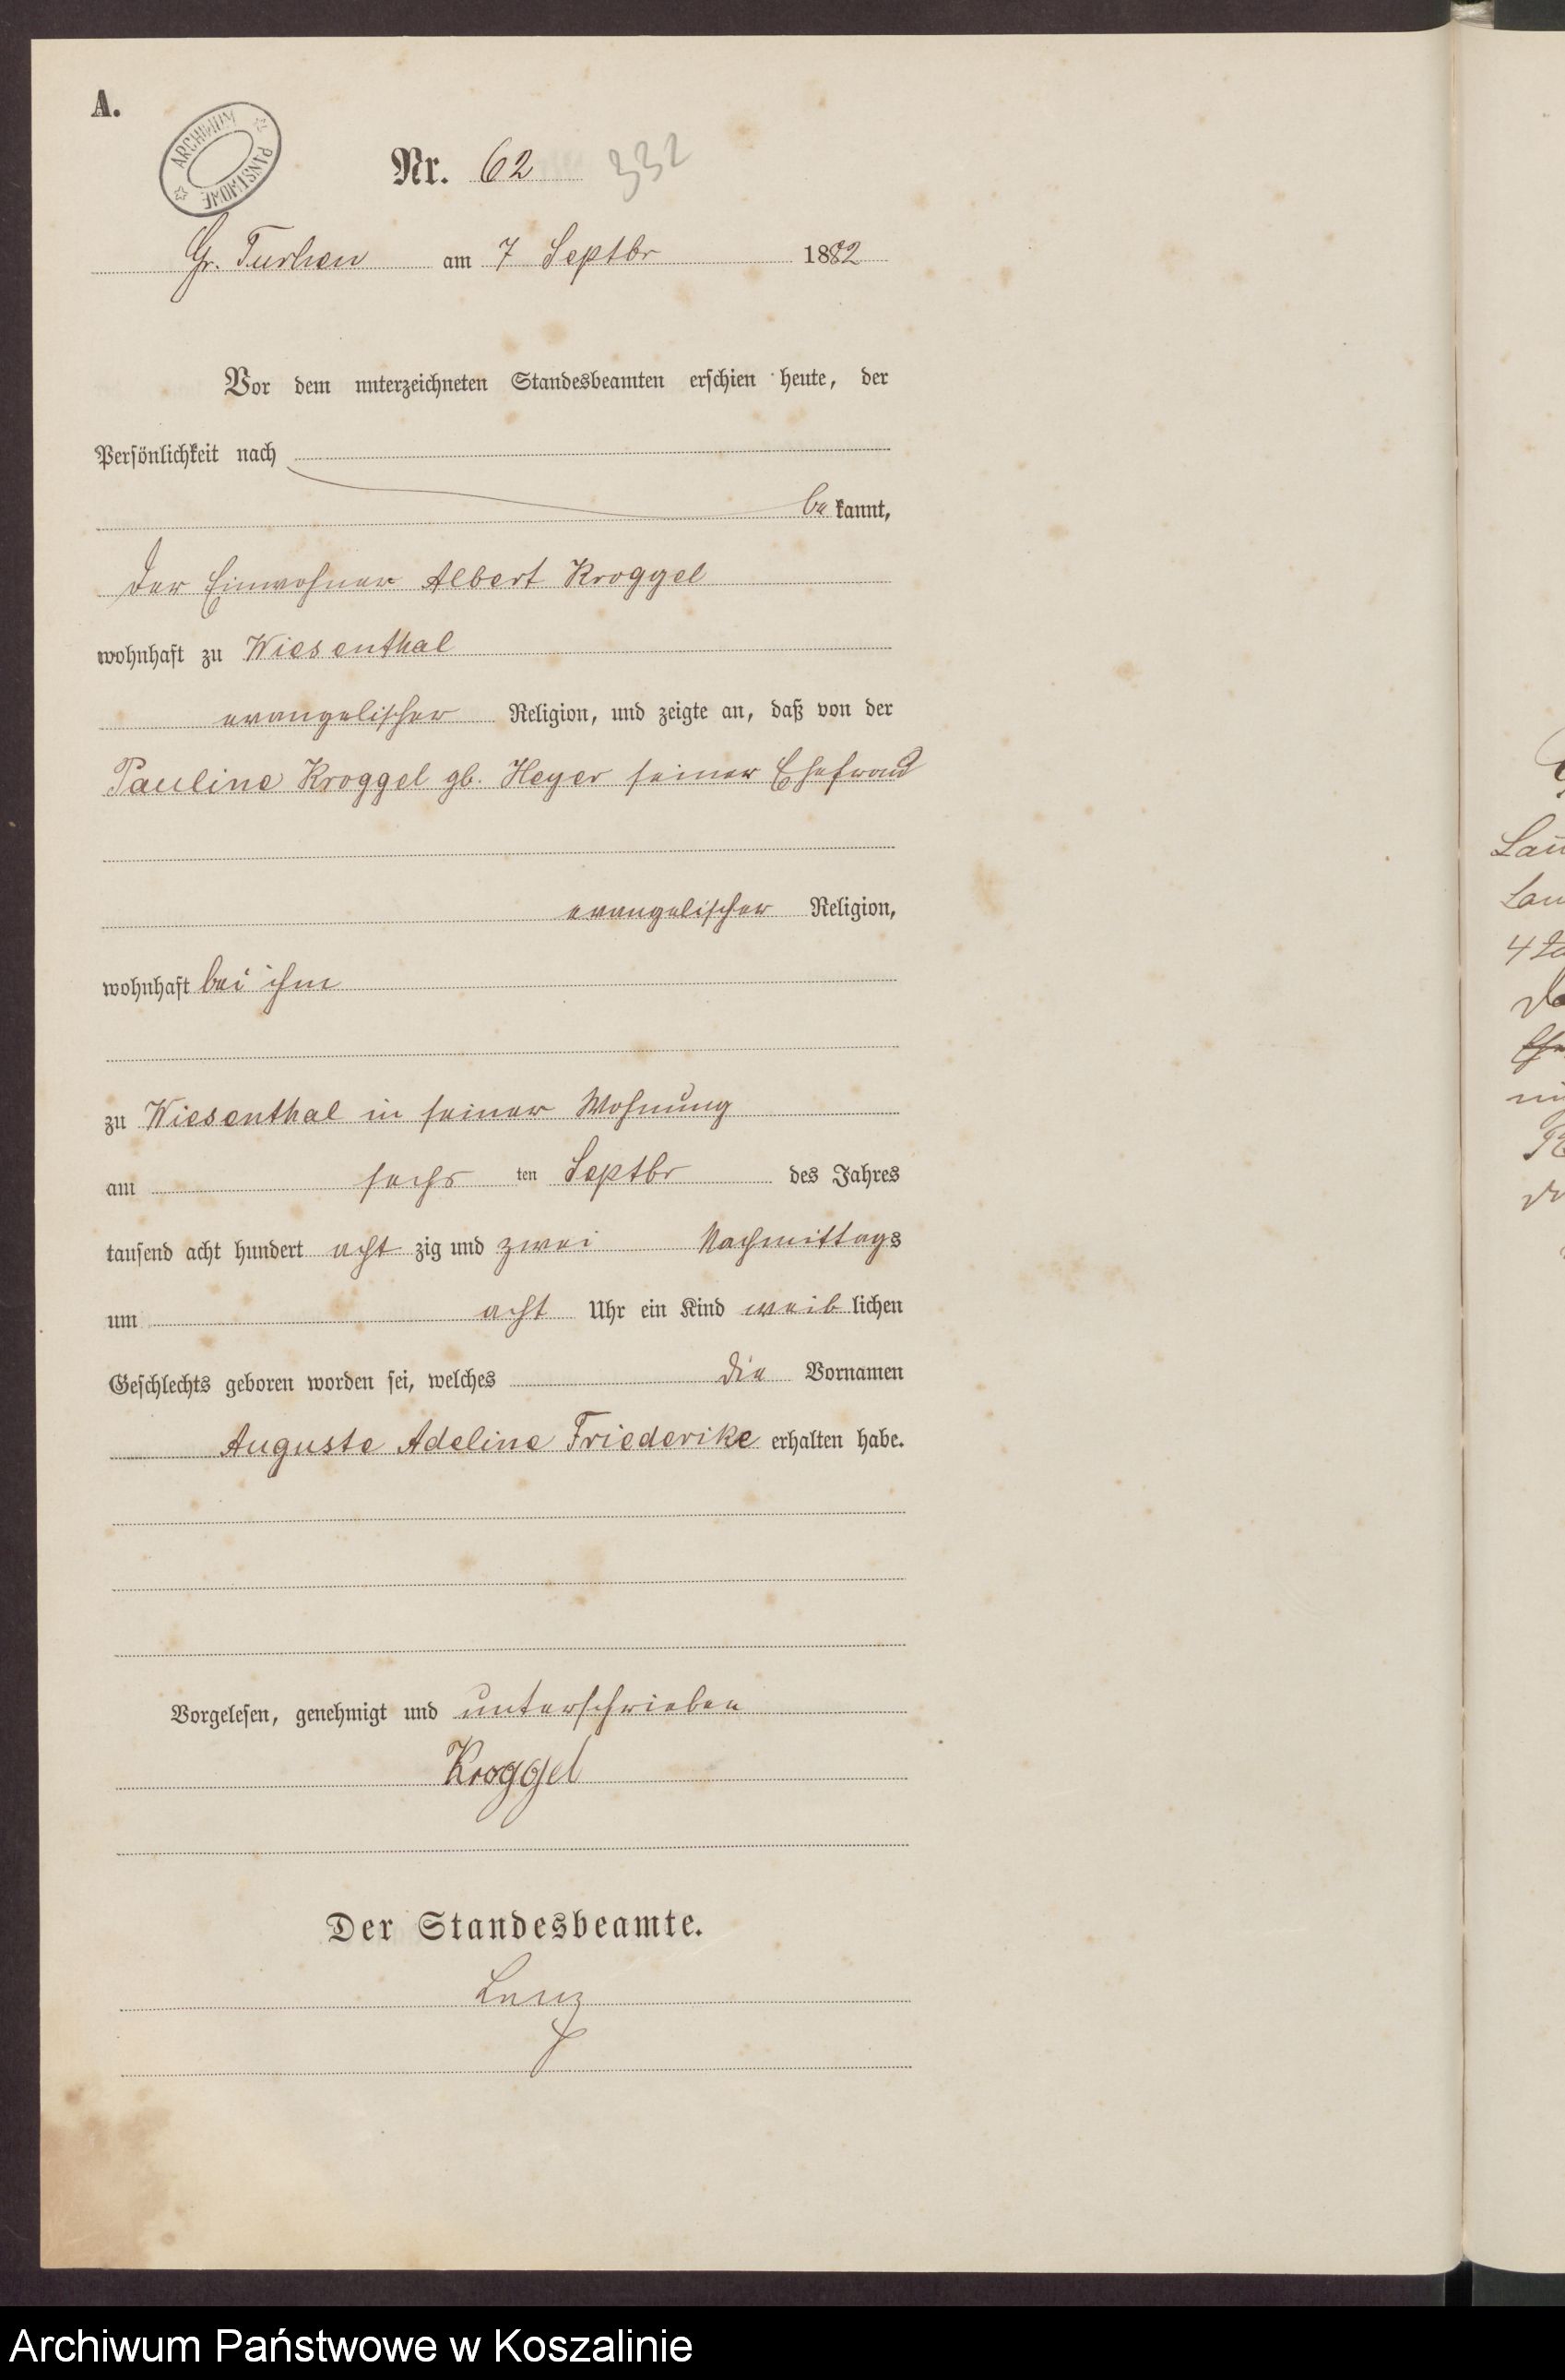 A.
ARCHIWUM PAŃSTWOWE
Nr. 62 332
Gr. Turhen am 7 Septbr 1882
Vor dem unterzeichneten Standesbeamten erschien heute, der
Persönlichkeit nach
be kannt,
der Einwohner Albert Kroggel
wohnhaft zu Wiesenthal
evangelischer Religion, und zeigte an, daß von der
Pauline Kroggel gb. Heyer seiner Ehefrau
evangelischer Religion,
wohnhaft bei ihm
zu Wiesenthal in seiner Wohnung
am sechs ten Septbr des Jahres
tausend acht hundert acht zig und zwei Nachmittags
um acht Uhr ein Kind weib lichen
Geschlechts geboren worden sei, welches die Vornamen
Auguste Adeline Friederike erhalten habe.
Vorgelesen, genehmigt und unterschrieben
Kroggel
Der Standesbeamte.
Lenz
Archiwum Państwowe w Koszalinie